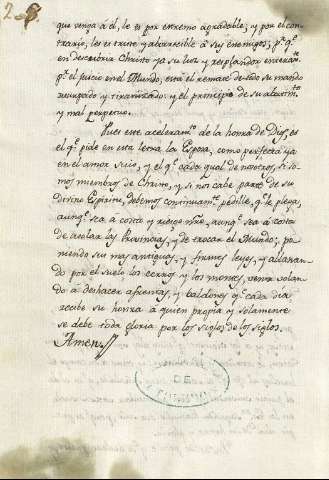 que venga à el, le es por extremo agradable; y por el con-
trario, les es triste y aborrecible à sus enemigos; pr. qe.
en descubrir Christo ya su luz y resplandor
pr. el juicio en el Mundo, està el remate de todo su mando
y tiranizado: y el principio de su
y mal perpetuo.
Pues este aceleramto. de la honra de Dios, es
el qe. pide en esta letra la Esposa, como perfecta ya
en el amor suio, y el qe. cada qual de nosotros, si so-
mos miembros de Christo, y si nos cabe parte de su
divino Espiritu, debemos continuamte. pedille, q. le plega,
aunqe. sea à costa y riesgo nro., aunqe. sea à costa
de asolar las Provincias, y de trocar el Mundo; po-
niendo sus mas antiguas, y firmes leyes, y allanan-
do por el suelo los cerros y los montes, venir volan-
do à deshacer afrentas, y baldones qe. cada dia
recibe su honra à quien propia y solamente
se debe toda gloria por los siglos de los siglos.
Amen
DE